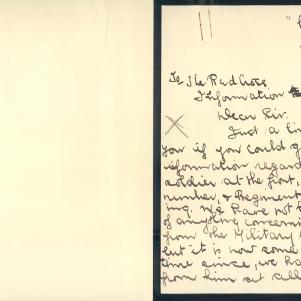 To The Red Cross
Information
Dear Sir.
Just a lin
you if you could g
information regard
soldier at the front,
number, & Regiment
ing. We have not h
of anything concerni
from the Military
but it is now some
time since, we ha
from him at all